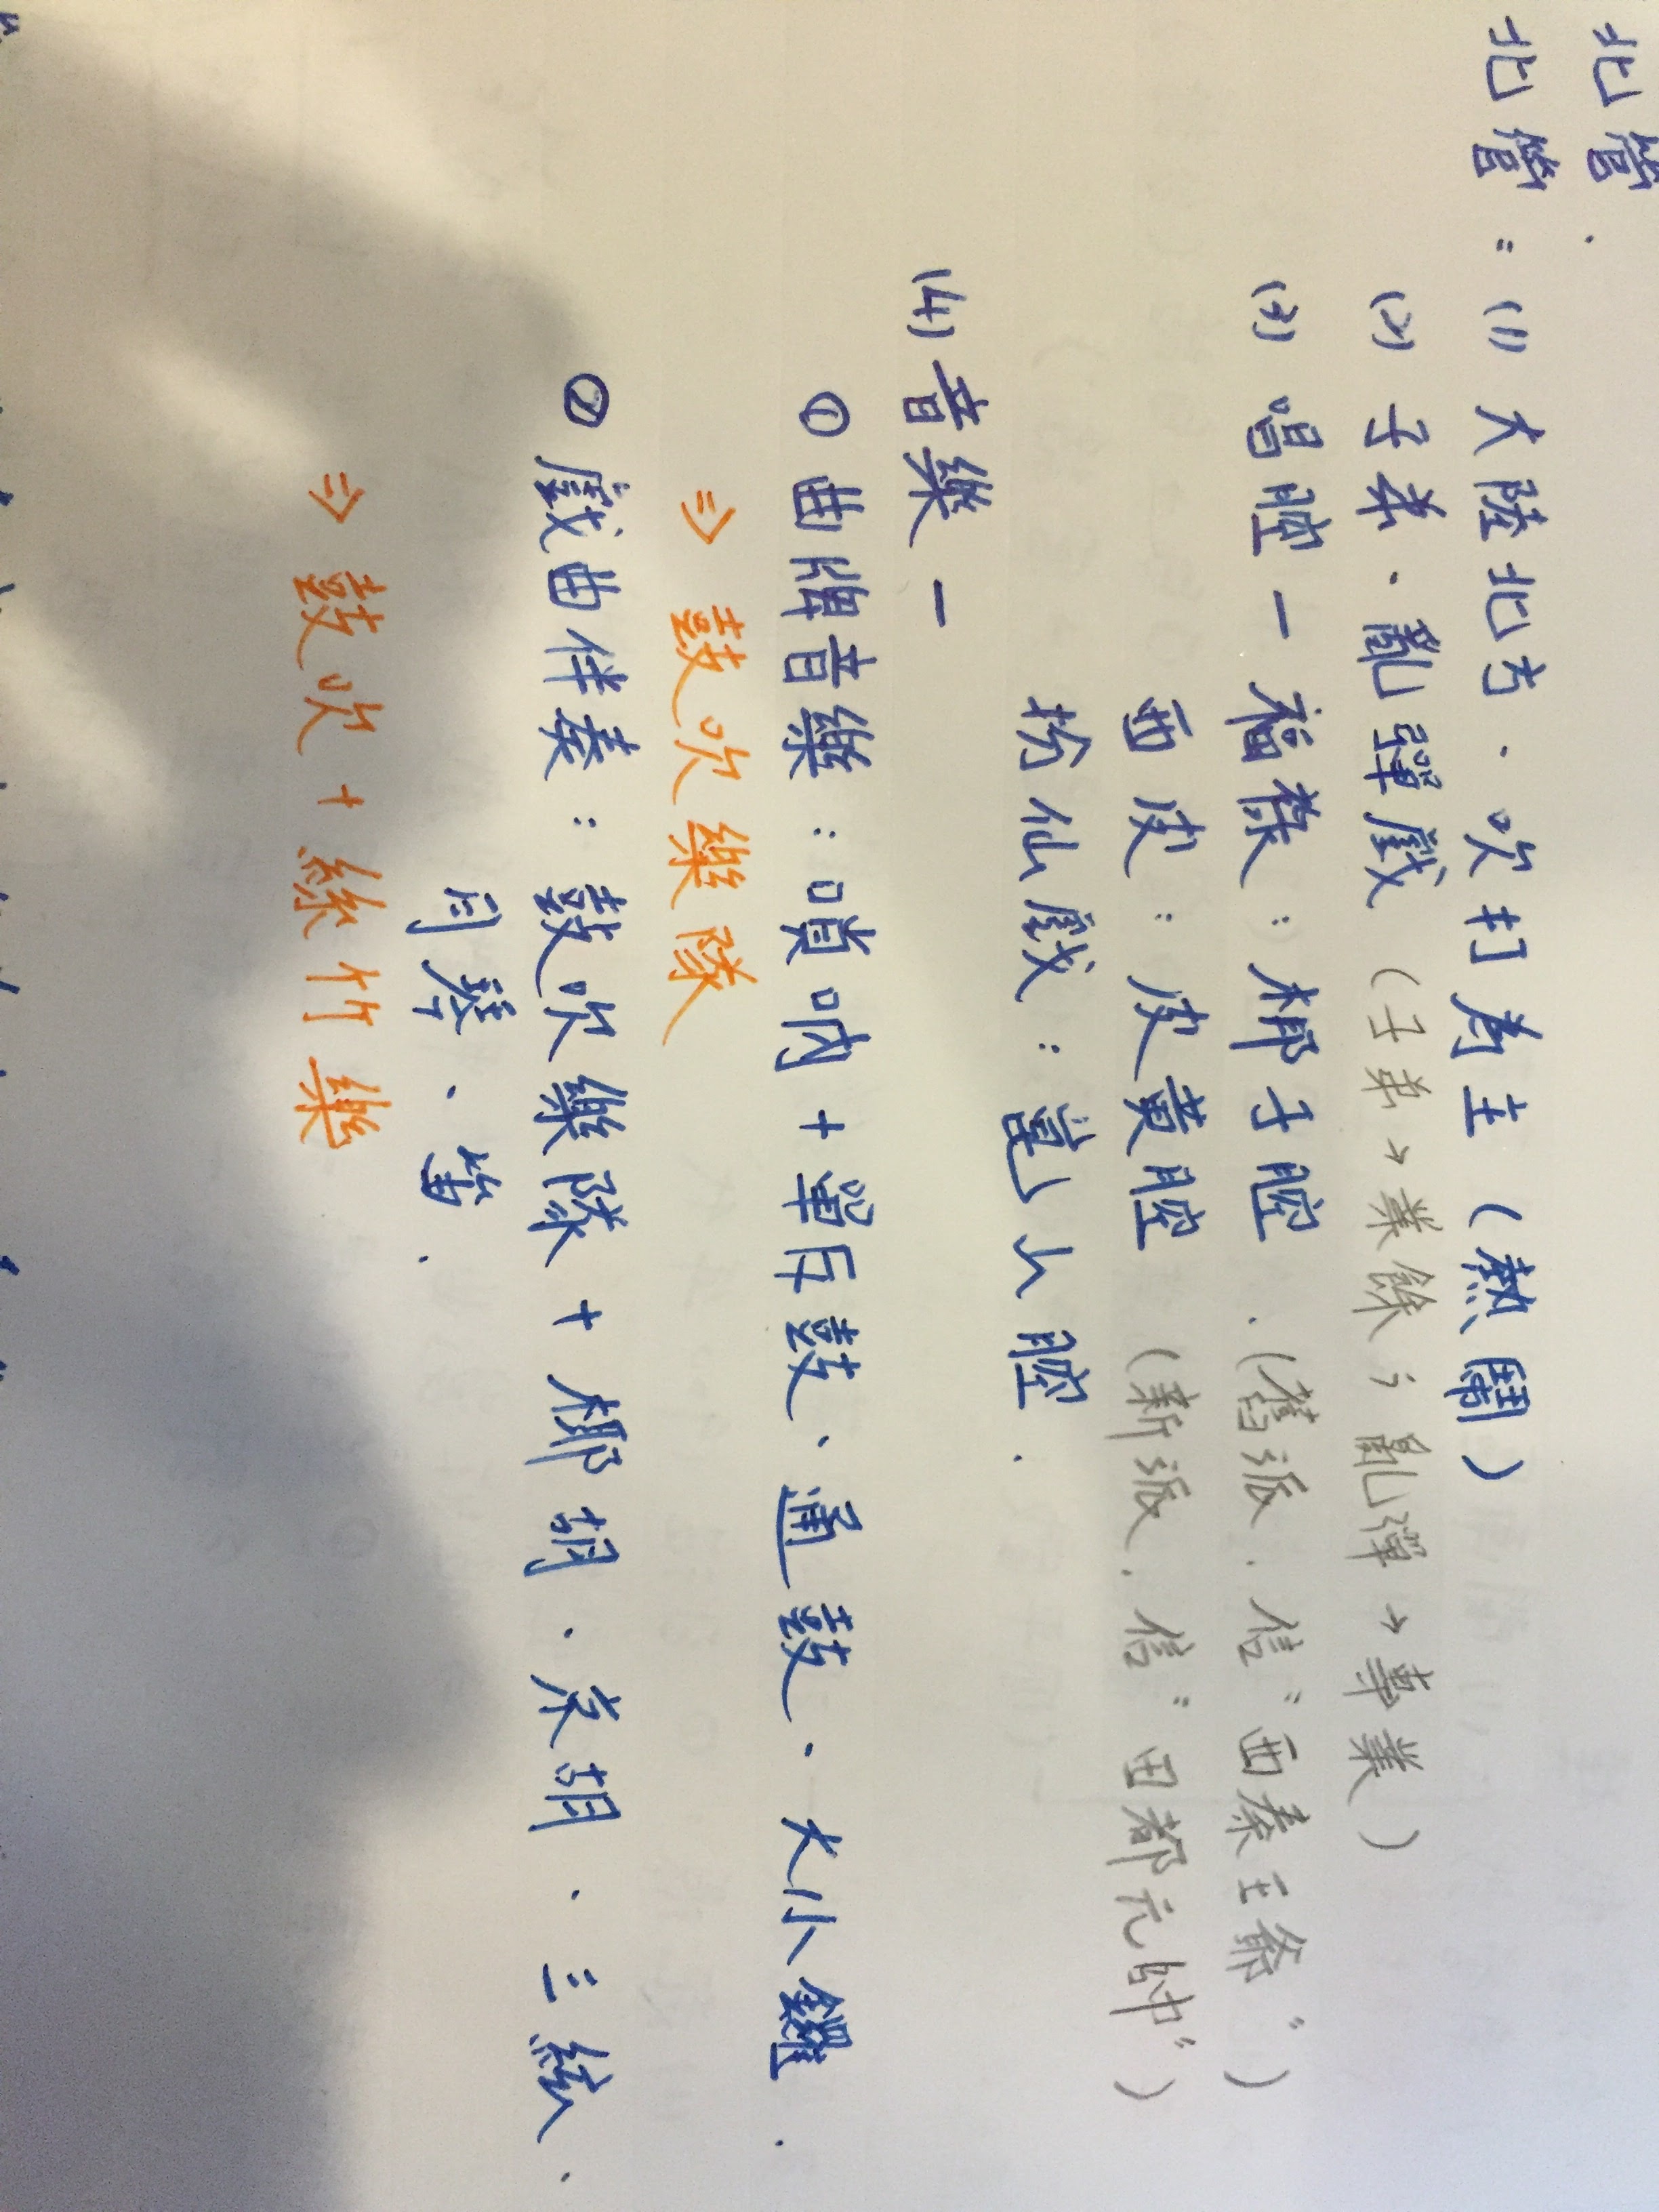 北管.
北管：(1) 大陸北方．吹打為主（熱鬧）
(2) 子弟、亂彈戲（子弟→業餘；亂彈→專業）
(3) 唱腔－福祿：梆子腔．（舊派．信“西秦王爺”）
西皮：皮黃腔（新派．信“田都元帥”）
扮仙戲：崑山腔．
(4) 音樂－
① 曲牌音樂：嗩吶＋單皮鼓、通鼓．大小鑼．
⇒ 鼓吹樂隊
② 戲曲伴奏：鼓吹樂隊＋椰胡．京胡．三絃．
月琴、笛．
⇒ 鼓吹＋絲竹樂